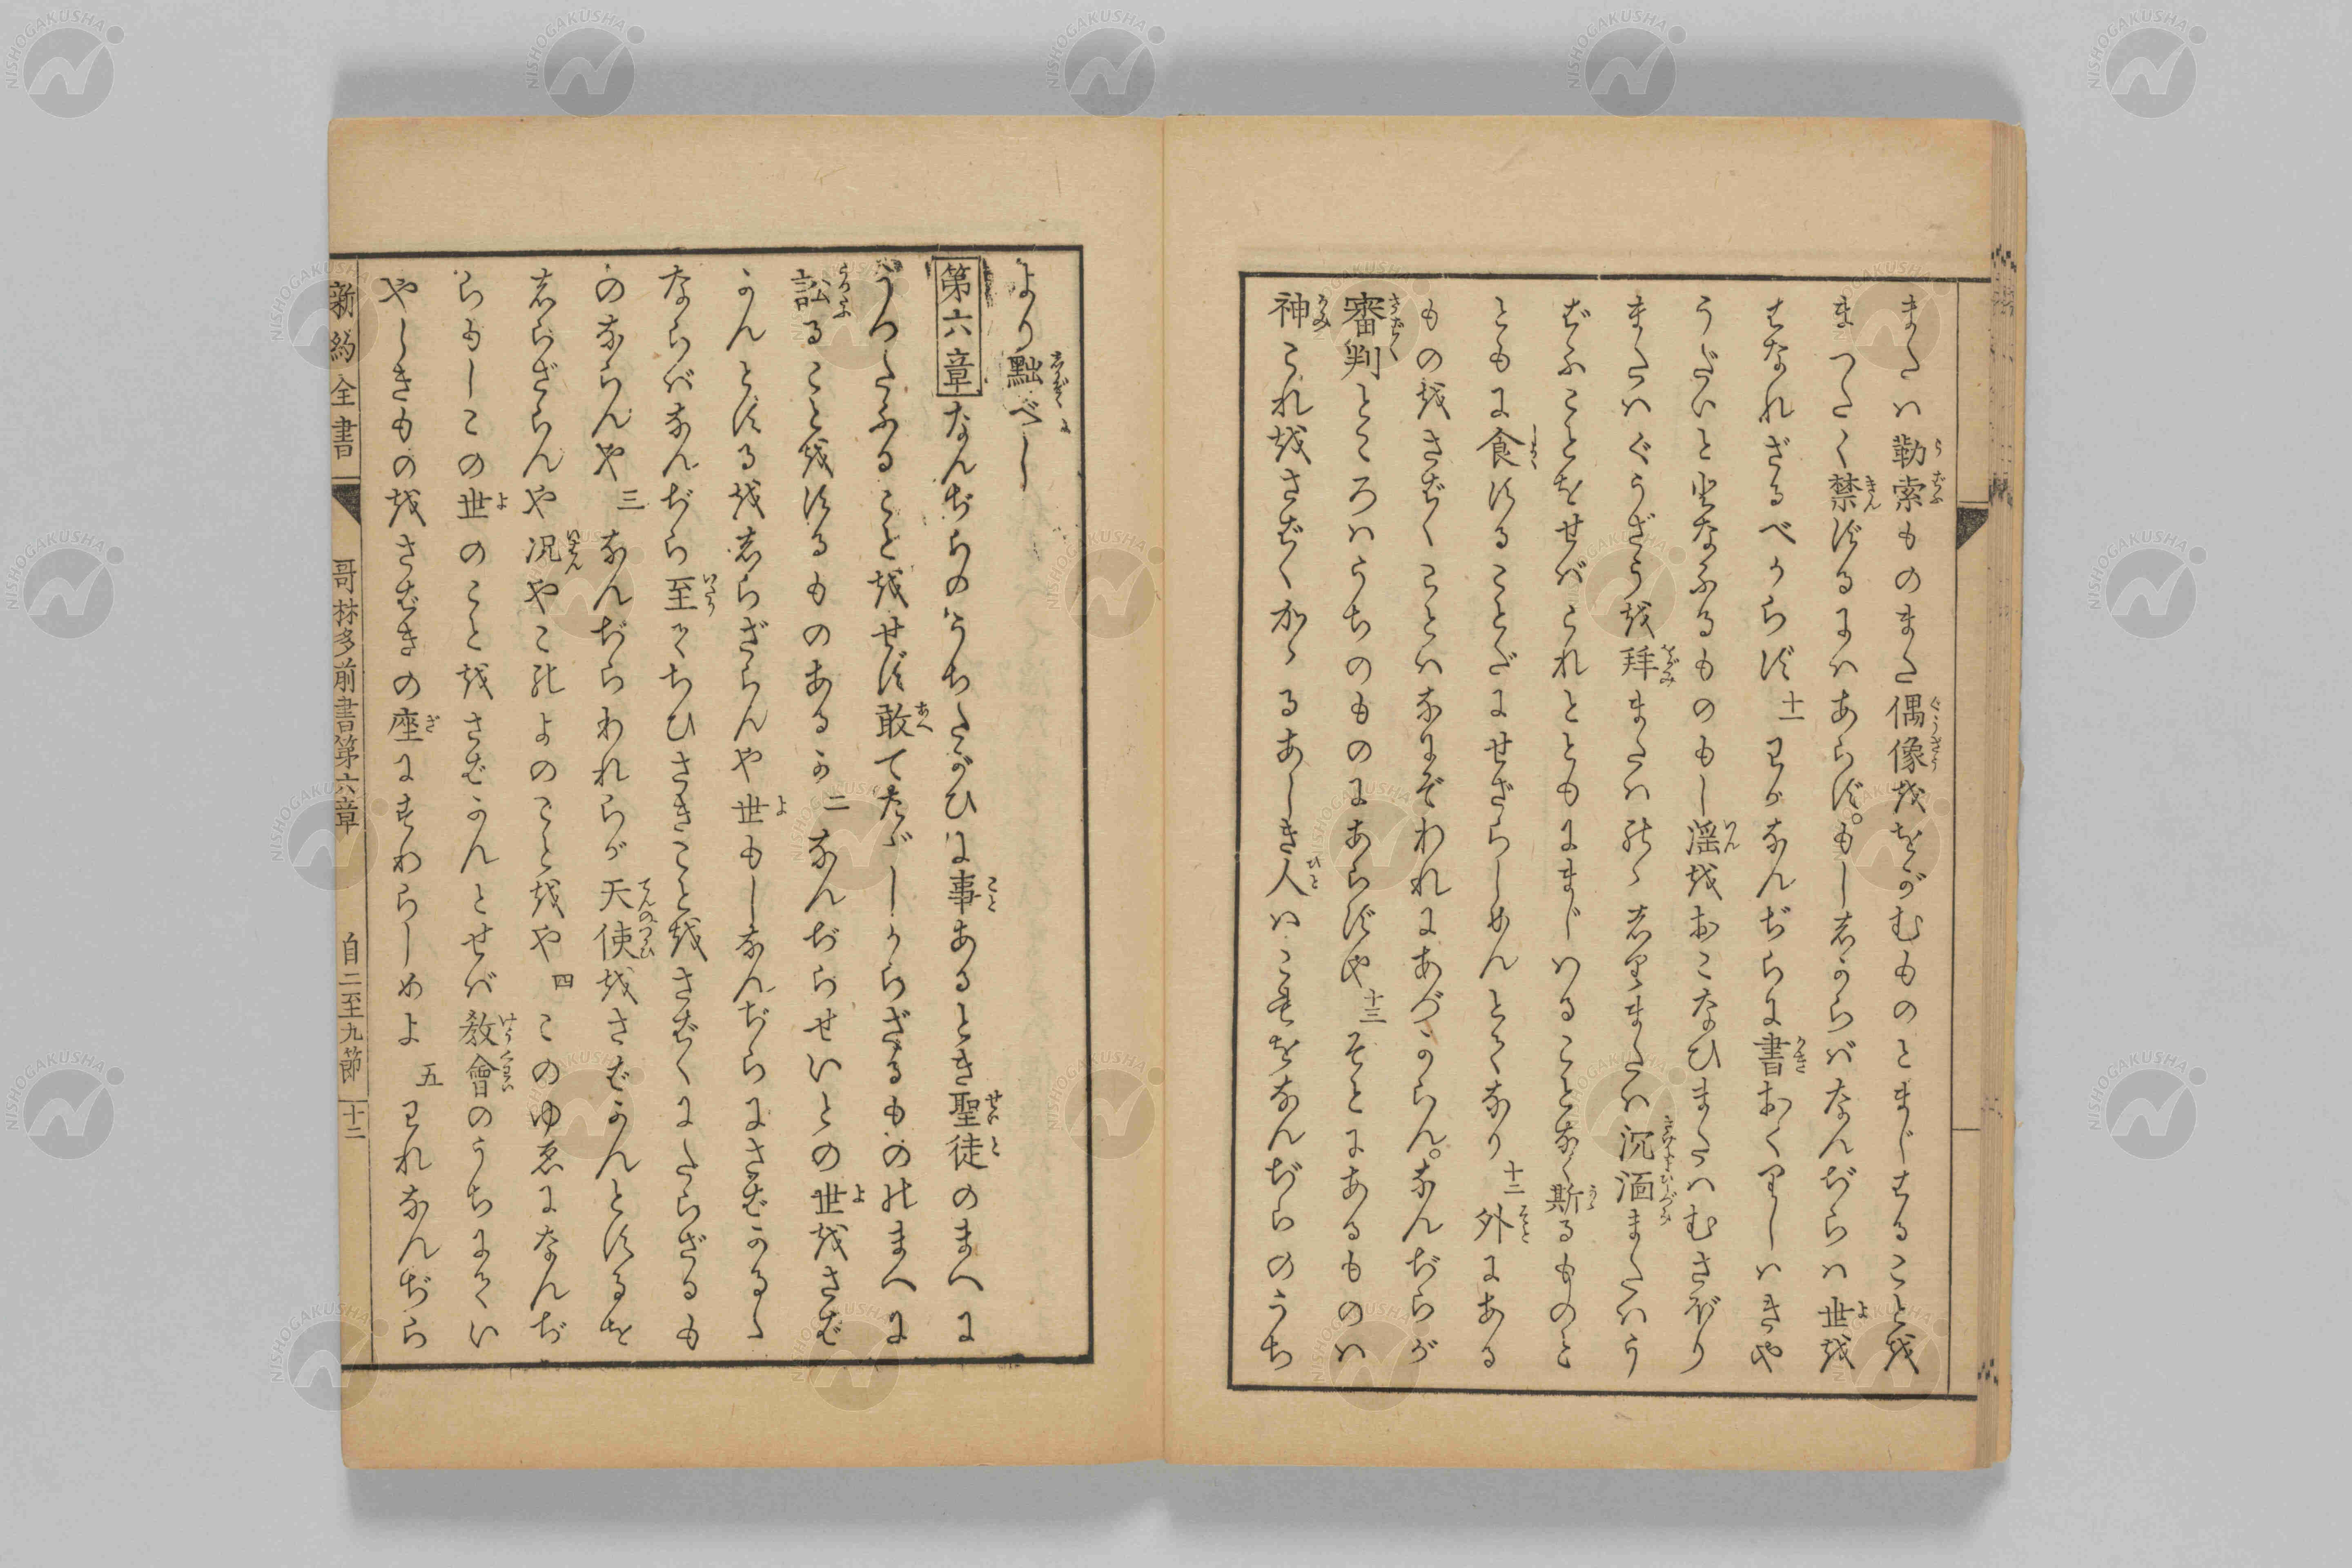 または勒索ものまた偶像をおがむものとまじはること越
まつたく禁ずるにはあらず。もし志からばなんぢらは世越
はなれざるべからず 十一 わがなんぢらに書おくりしはきや
うだいととなふるものもし淫越おこなひまたはむさぼり
またはぐうざう越拜またはのゝ志りまたは沉湎またはう
ばふことをせばこれとともにまじはることなく斯るものと
ともに食することだにせざらしめんとてなり 十二 外にある
もの越さばくことはなにぞわれにあづからん。なんぢらが
審判ところはうちのものにあらずや 十三 そとにあるものは
神これ越さばくかゝるあしき人はこれをなんぢらのうち
より黜べし
第六章 なんぢらのうちたがひに事あるとき聖徒のまへに
うつたふること越せず敢てたゞしからざるもののまへに
訟ること越するものあるか 二 なんぢらせいとの世越さば
かんとする越志らざらんや世もしなんぢらにさばかるゝ
ならばなんぢら至てちひさきこと越さばくにたらざるも
のならんや 三 なんぢらわれらが天使越さばかんとするを
志らざらんや况やこのよのこと越や 四 このゆゑになんぢ
らもしこの世のこと越さばかんとせば教會のうちにてい
やしきもの越さばきの座にすわらしめよ 五 われなんぢら
新約全書 哥林多前書第六章 自二至九節 十二